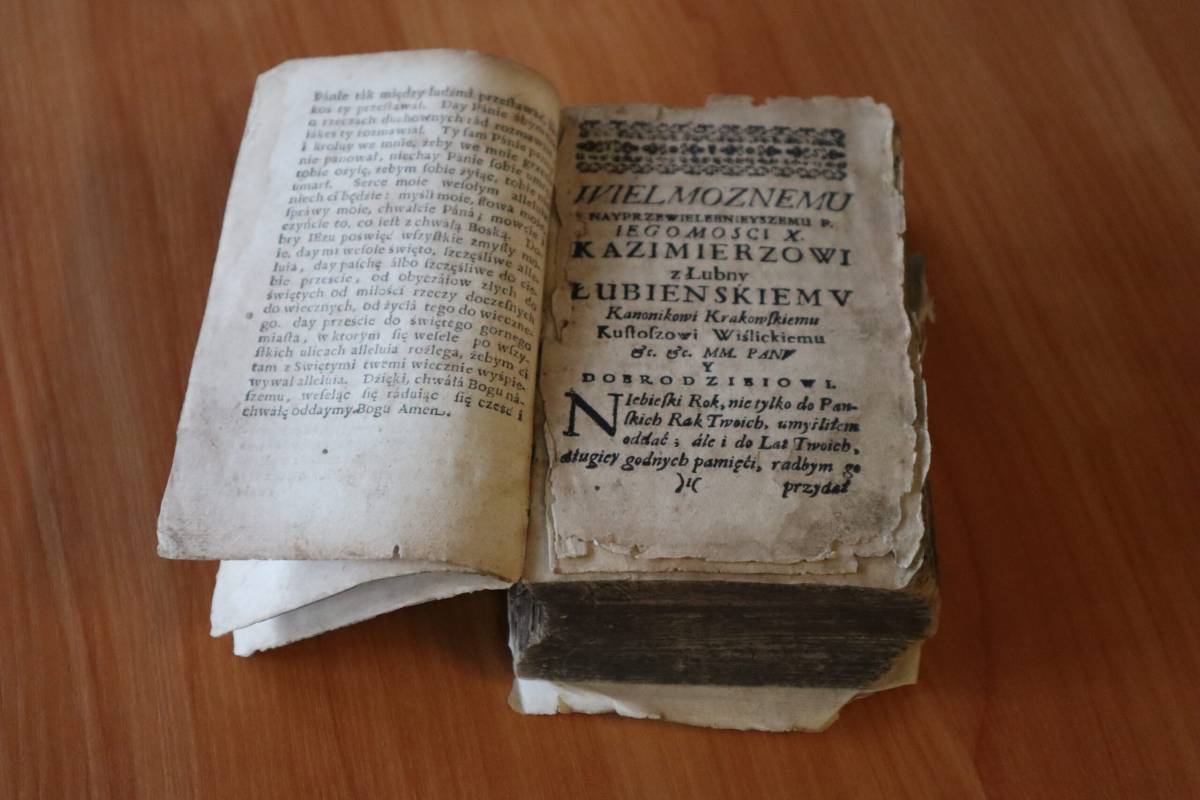 Pánie ták między ludźmi przestawał,
koś ty przestawał. Day Pánie ábym
o rzeczách duchownych rád rozmawiał
iákeś ty rozmawiał. Ty sam Pánie panuy
i kroluy we mnie, żeby we mnie grzech
nie pánował, niechay Pánie sobie umrę
tobie ożyię, żebym sobie żyiąc, tobie nie
umarł. Serce moie wesołym alleluia
niech ci będzie: myśli moie, słowa moie,
sprawy moie, chwalcie Páná; mowcie i
czyńcie to, co iest z chwałą Boską. Do-
bry IEzu poświęć wszystkie zmysły mo-
ie, day mi wesołe święto, szczęśliwe alle-
luia, day paschę álbo szczęśliwe do cie-
bie przeście, od obyczáiow złych do
świętych od miłości rzeczy doczesnych
do wiecznych, od życiá tego do wieczne-
go. day przeście do świętego gornego
miasta, w ktorym się wesele po wszy-
stkich ulicach alleluia rozlega, żebym ci
tam z Swiętymi twemi wiecznie wyśpie-
wywał alleluia. Dzięki, chwáłá Bogu ná-
szemu, weseląc się ráduiąc się cześć i
chwałę oddaymy Bogu Amen.
WIELMOZNEMU
NAYPRZEWIELEBNIEYSZEMU P.
IEGOMOSCI X.
KAZIMIERZOWI
z Łubny
ŁUBIENSKIEMV
Kanonikowi Krakowskiemu
Kustoszowi Wiślickiemu
&c. &c. MM. PANV
Y
DOBRODZIEIOWI.
Niebieski Rok, nie tylko do Pan-
skich Rąk Twoich, umyśliłem
oddać; ále i do Lat Twoich,
długiey godnych pamięći, radbym go
)1( przydał